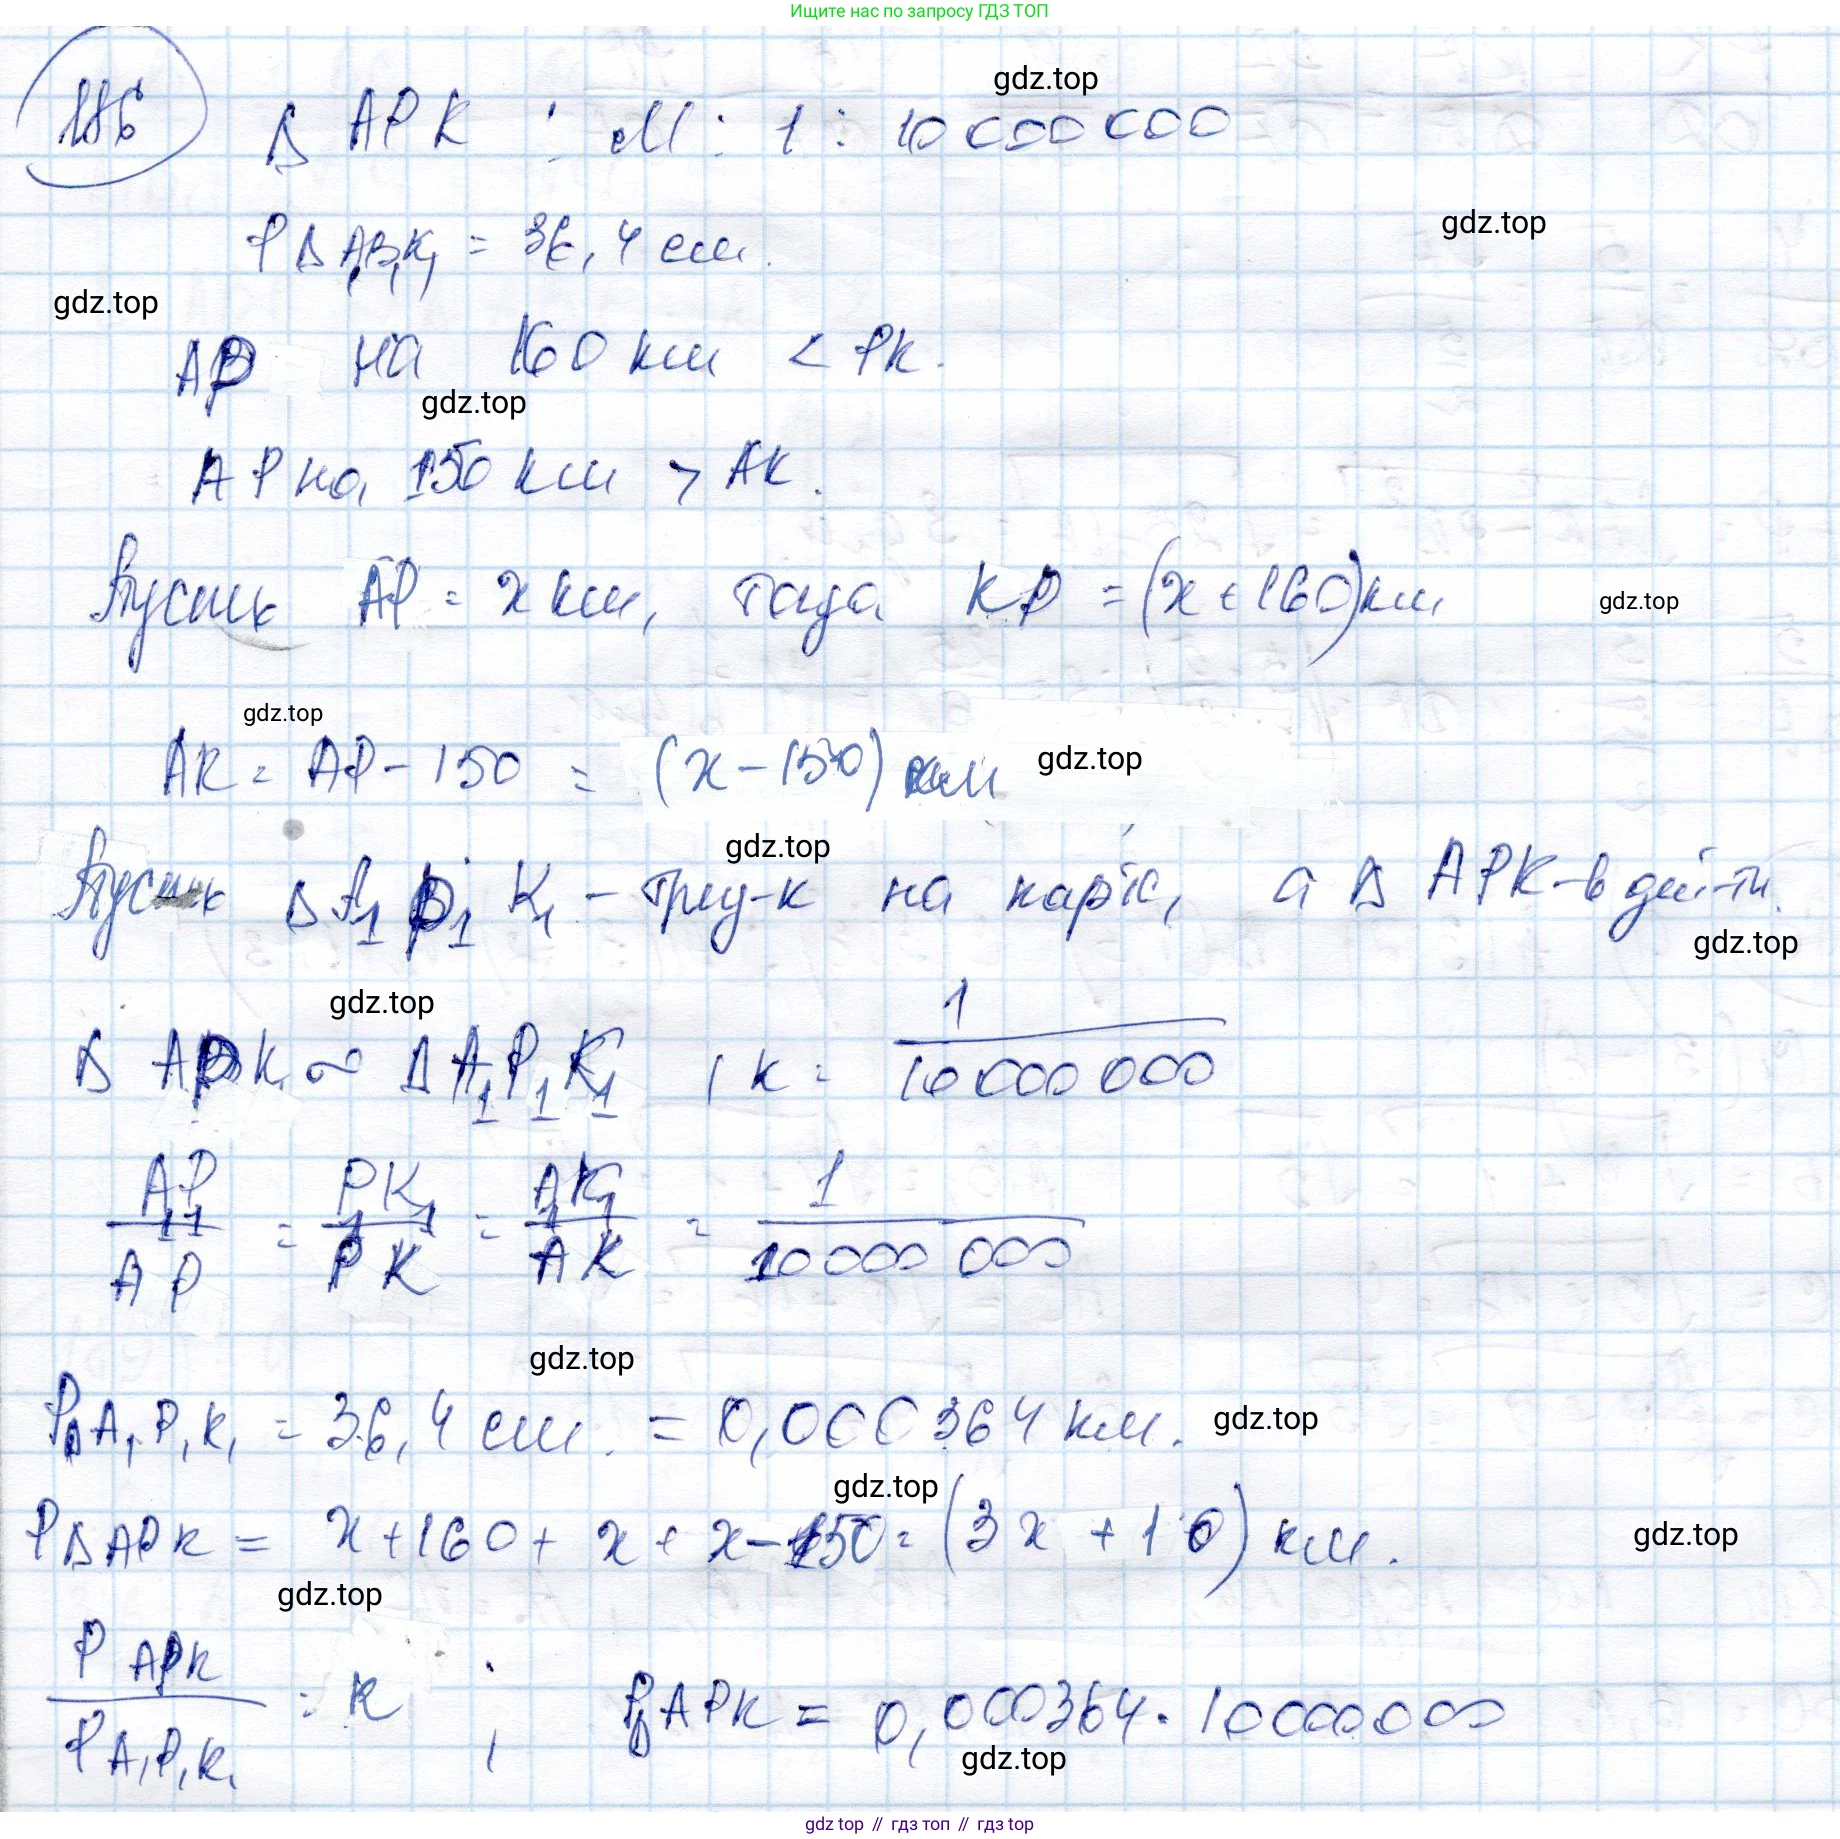 Ищите нас по запросу ГДЗ ТОП
gdz.top
186 Δ APK : M : 1 : 10 000 000
gdz.top
P Δ A₁P₁K₁ = 36,4 см.
gdz.top
AP на 160 км < PK.
gdz.top
AP на 150 км > AK.
Пусть AP = x км, тогда KP = (x + 160) км gdz.top
gdz.top
AK = AP - 150 = (x - 150) км gdz.top
gdz.top
Пусть Δ A₁P₁K₁ - треу-к на карте, а Δ APK - в дей-ти.
gdz.top
gdz.top
Δ APK ~ Δ A₁P₁K₁, k = 1/10 000 000
A₁P₁/AP = P₁K₁/PK = A₁K₁/AK = 1/10 000 000
gdz.top
PΔA₁P₁K₁ = 36,4 см. = 0,000364 км. gdz.top
gdz.top
PΔAPK = x + 160 + x + x - 150 = (3x + 10) км. gdz.top
gdz.top
P APK/P A₁P₁K₁ = k ; PΔAPK = 0,000364 · 10000000
gdz.top
gdz top // гдз топ // гдз top